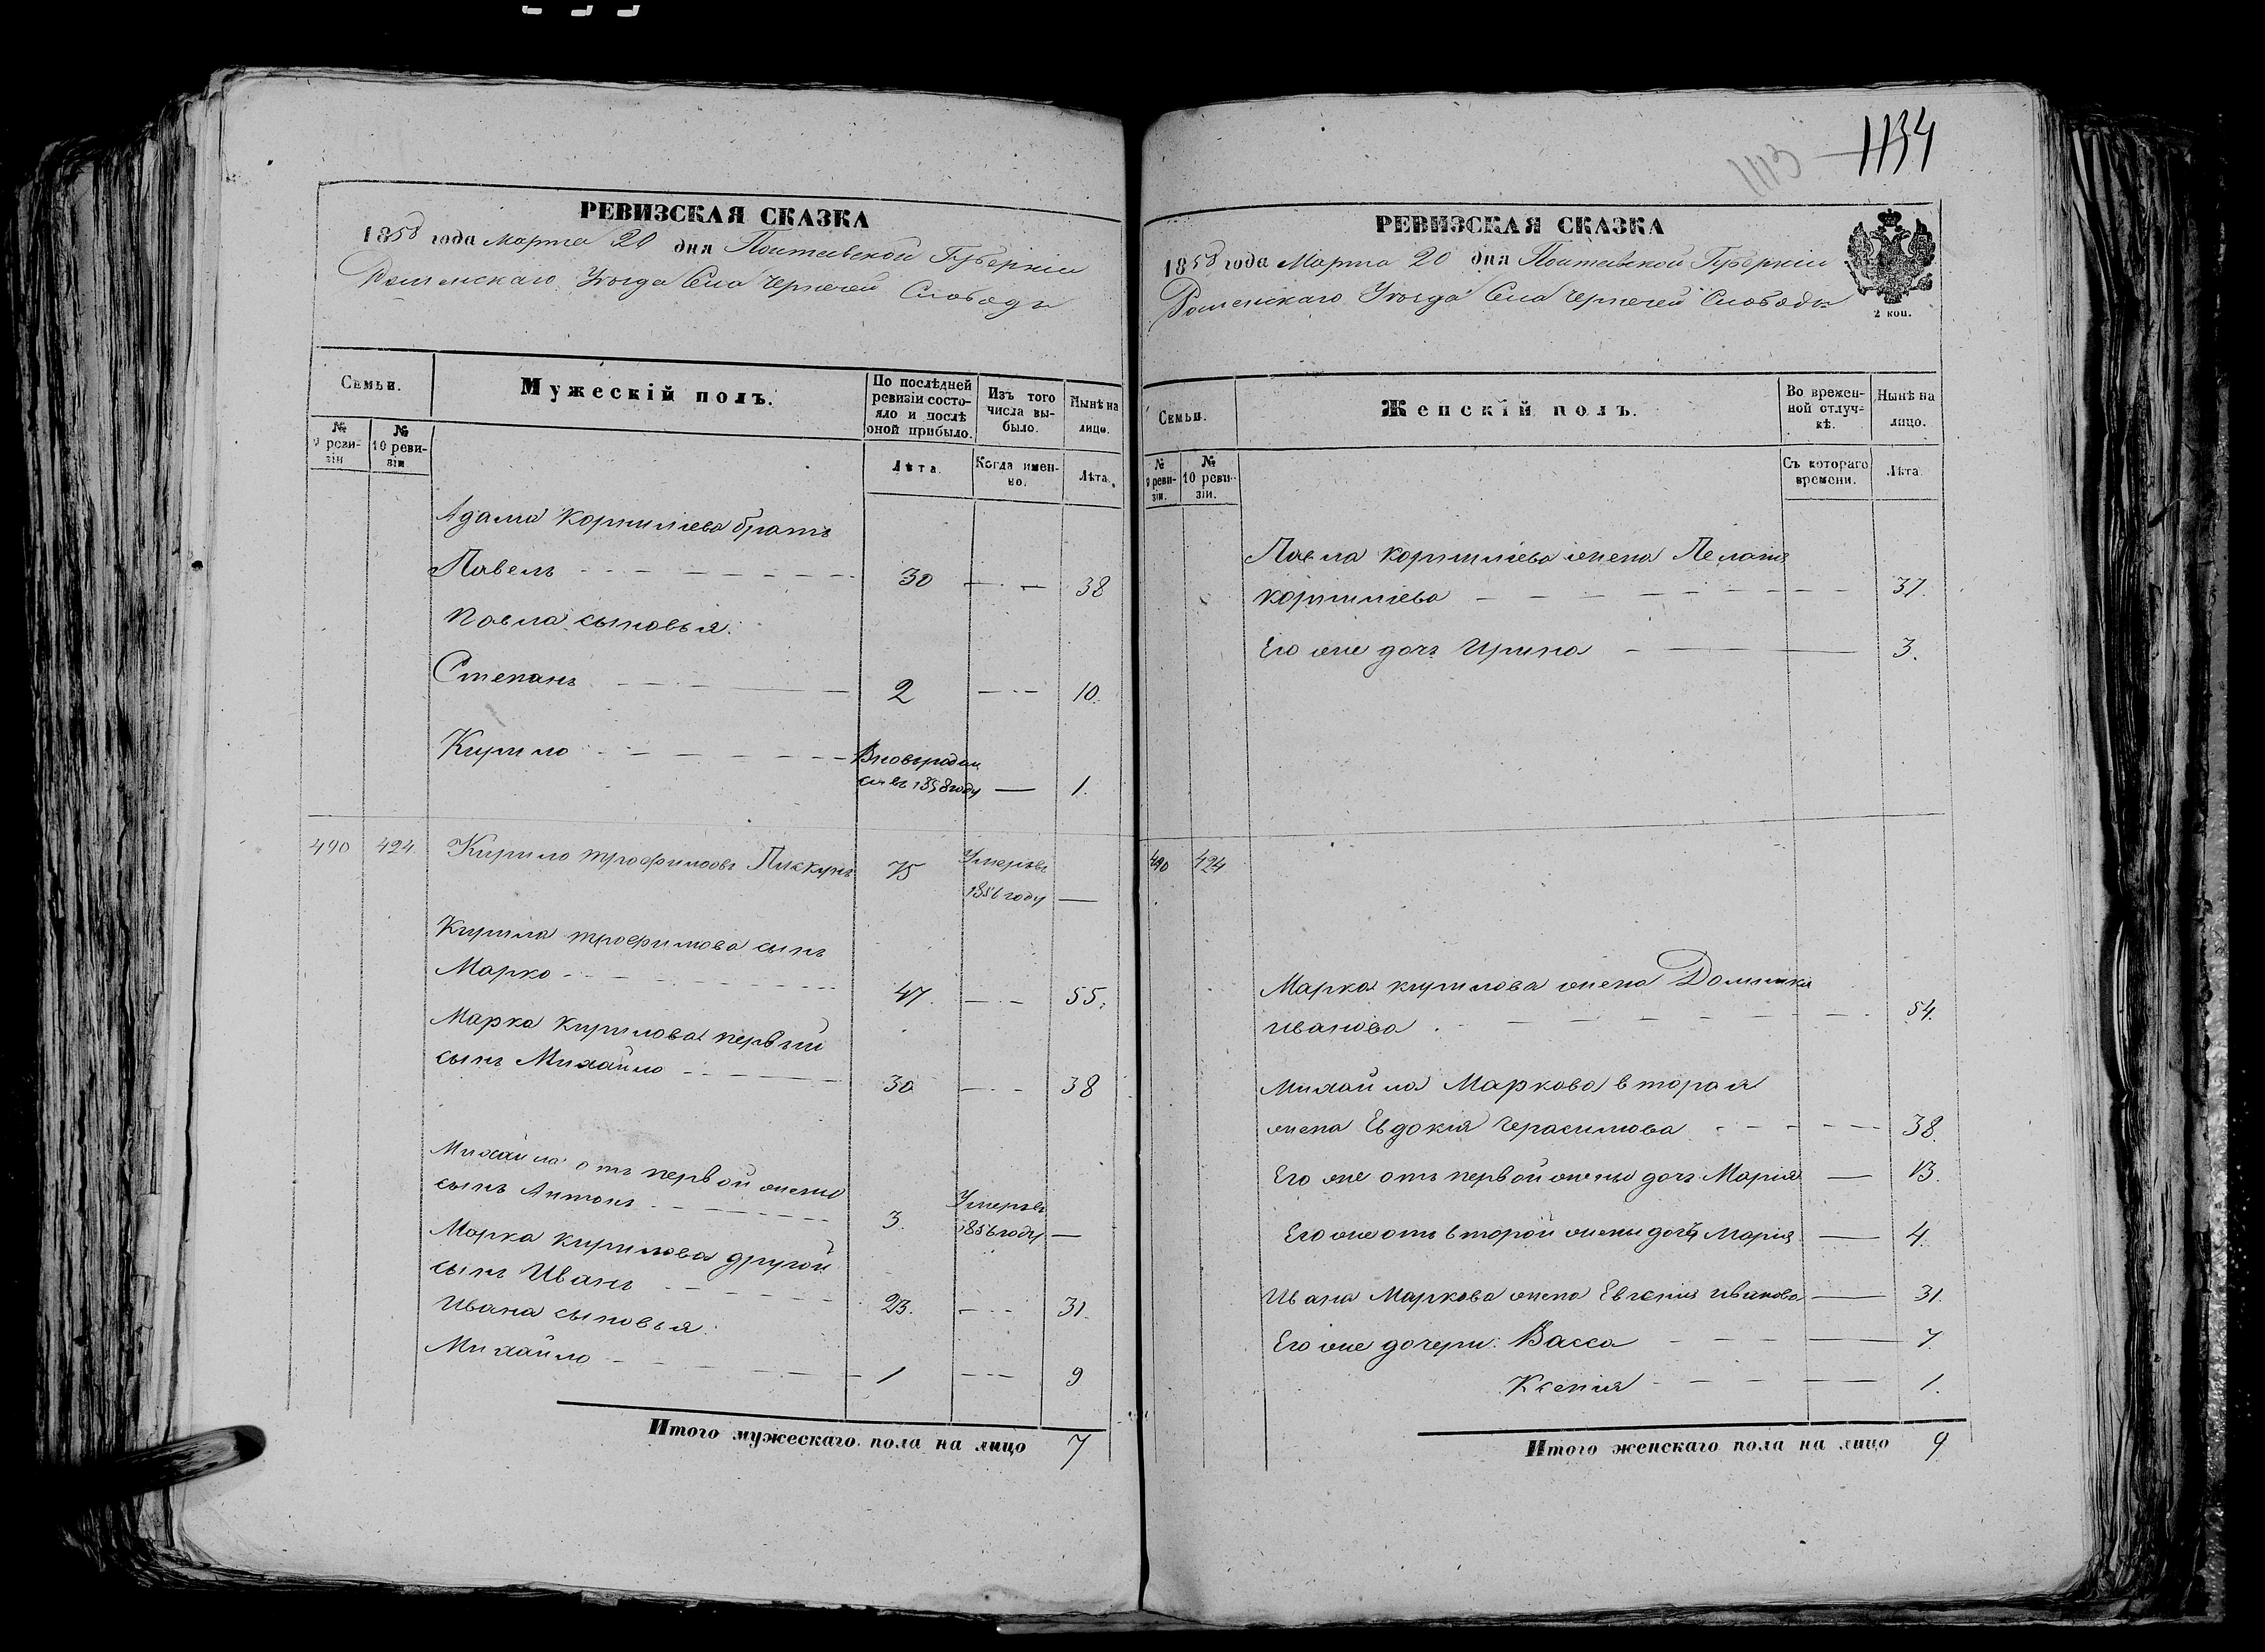 РЕВИЗСКАЯ СКАЗКА
1858 года Марта 20 дня Полтавской Губерніи
Роменскаго Уезда Села Чернечей Слободы
Семьи.
Мужескій полъ.
По послѣдней ревизіи состояло и послѣ оной прибыло.
Изъ того числа выбыло.
Нынѣ на лицо.
№ 9 ревизіи
№ 10 ревизіи
Лѣта.
Когда именно.
Лѣта.
Адама Корнилiева братъ
Павелъ 30 — 38
Павла сыновья:
Степанъ 2 — 10.
Кирило Вновьродил
ся въ 1858 году — 1.
490 424. Кирило Трофимовъ 75 Умеръ въ
1856 году —
Кирила Трофимова сынъ
Марко 47. — 55.
Марка Кирилова первый
сынъ Михайло 30 — 38
Михайла отъ первой жены
сынъ Антонъ 3. Умеръ въ
1856 году —
Марка Кирилова другой
сынъ Иванъ 23. — 31.
Ивана сыновья:
Михайло 1 — 9
Итого мужескаго пола на лицо 7
1113 1134
РЕВИЗСКАЯ СКАЗКА
1858 года Марта 20 дня Полтавской Губерніи
Роменскаго Уезда Села Чернечей Слободы
2 коп.
Семьи.
Женскій полъ.
Во временной отлучкѣ.
Нынѣ на лицо.
№ 9 ревизіи.
№ 10 ревизіи.
Съ котораго времени.
Лѣта
Павла Корнилiева жена
Корнилiева 37.
Его же дочь Ирина 3.
490 424
Марка Кирилова жена Домника
Иванова 54.
Михайла Маркова вторая
жена Евдокія Герасимова 38.
Его же отъ первой жены дочь Марія 13.
Его же отъ второй жены дочь Марія 4.
Ивана Маркова жена Евгенія Иванова 31.
Его же дочери: Васса 7.
Ксенія 1.
Итого женскаго пола на лицо 9